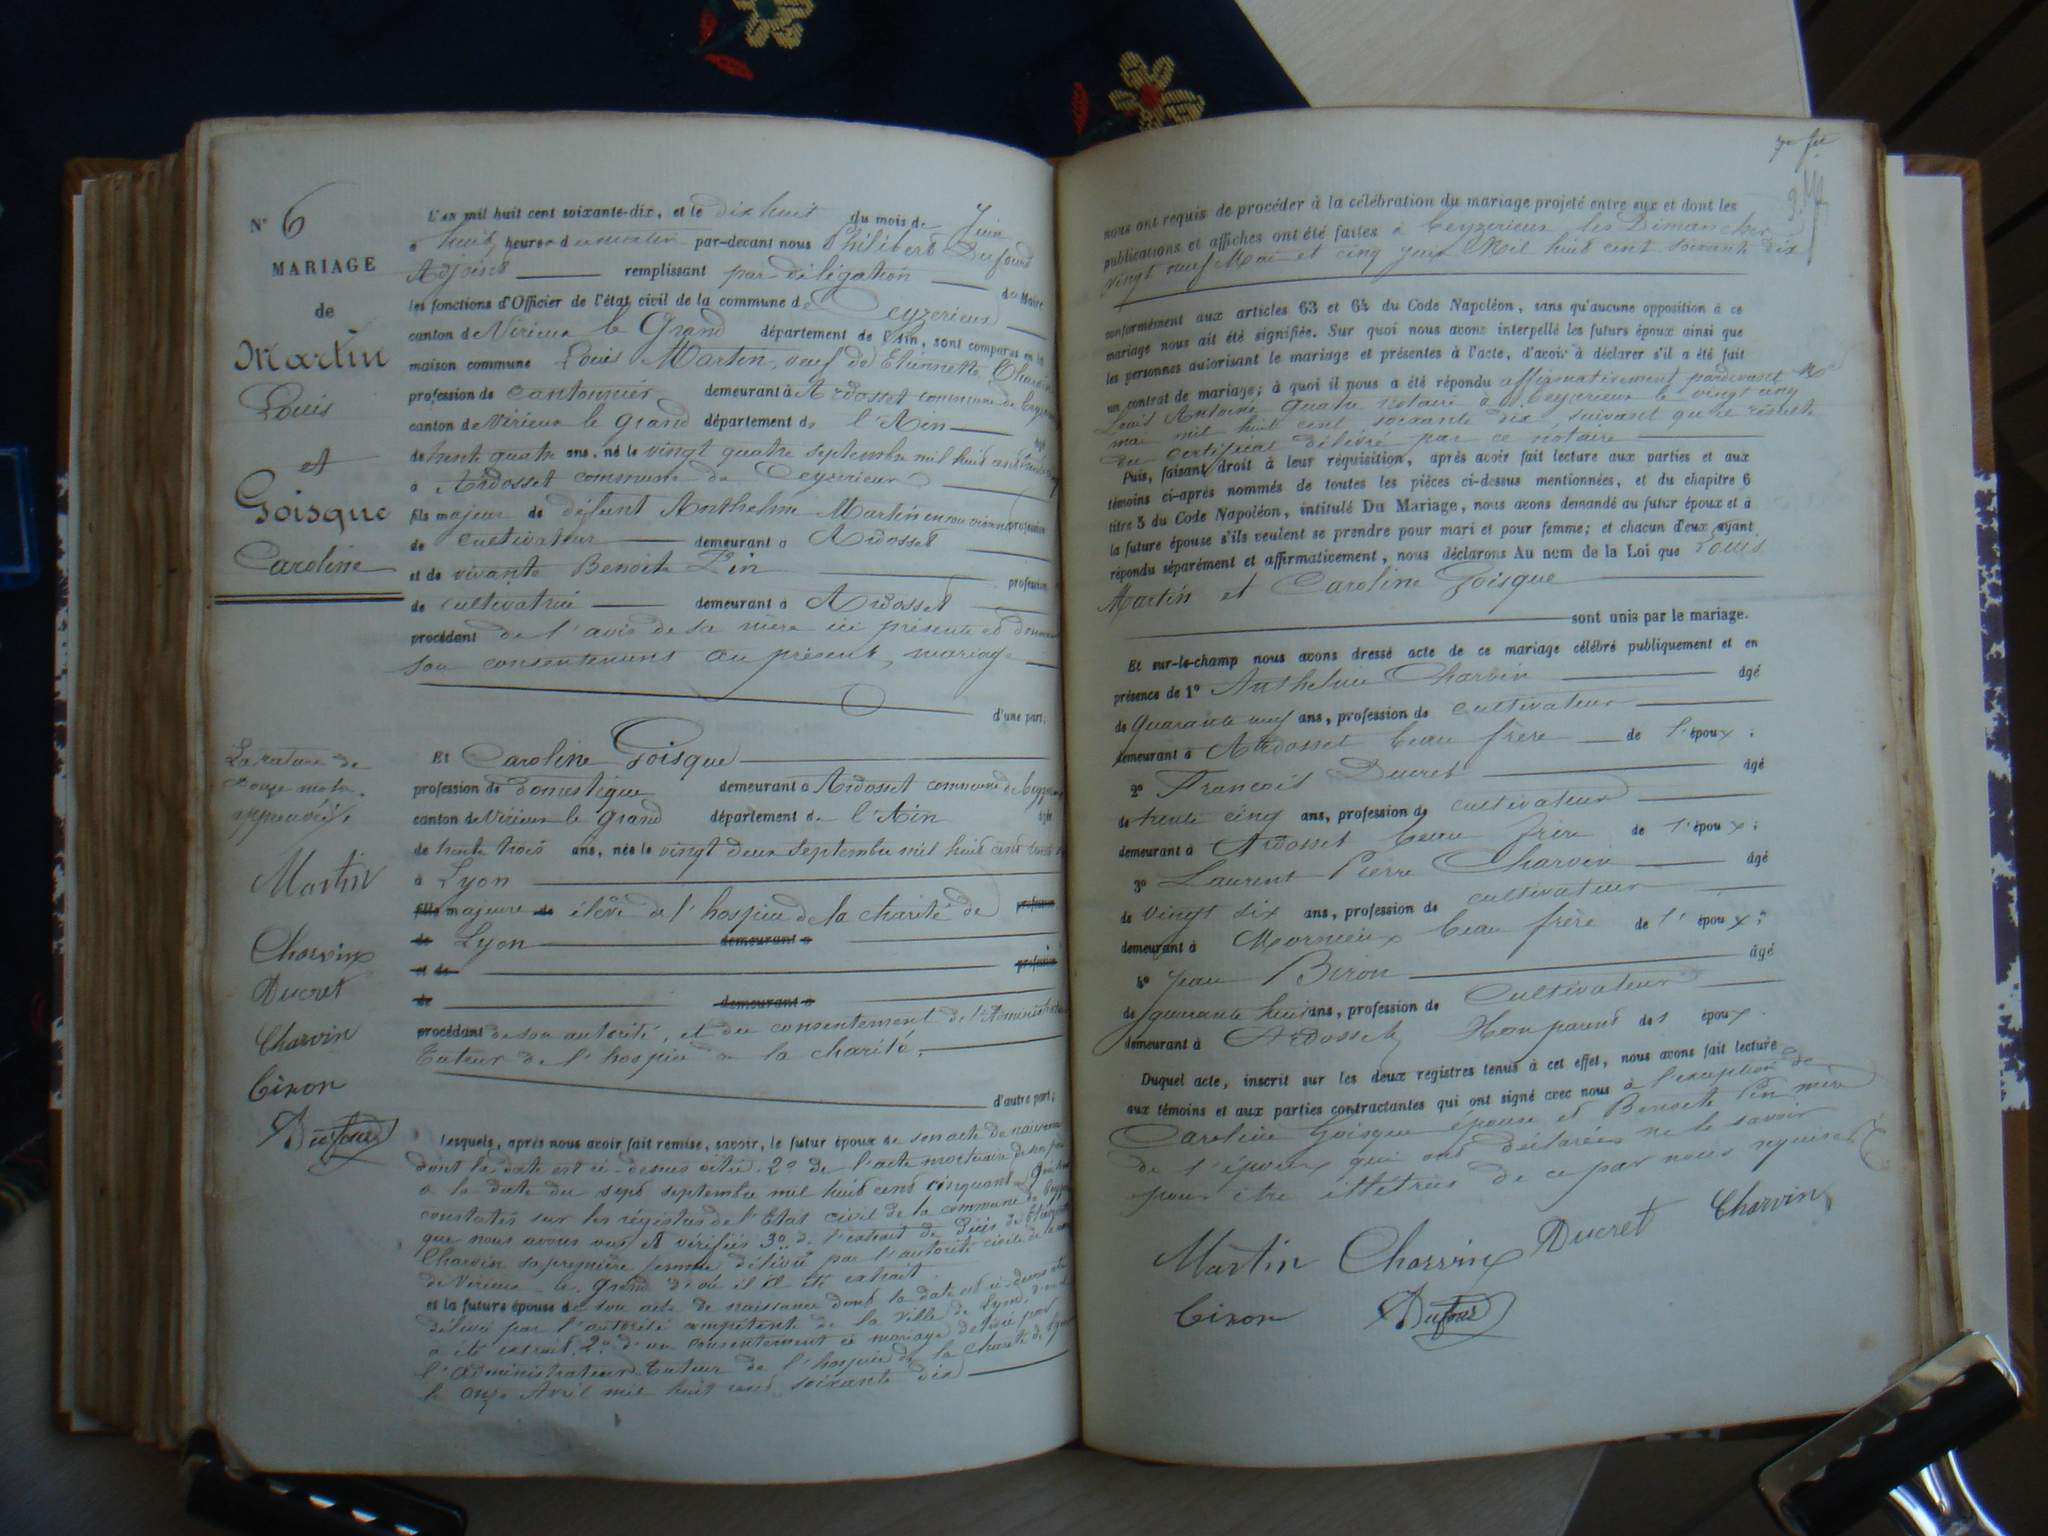 N° 6
MARIAGE
de
Martin
Louis
et
Goisque
Caroline
La rature de
douze mots
approuvée
Martin
Charvin
Ducret
Charvin
Biron
Dufour
L'an mil huit cent soixante-dix, et le dix huit du mois de Juin
à huit heures du matin par-devant nous Philibert Dufour
Adjoint remplissant par délégation du Maire
les fonctions d'Officier de l'état civil de la commune de Ceyzerieu
canton de Virieu le Grand département de l'Ain, sont comparus en la
maison commune Louis Martin, veuf de Etiennette Charvin
profession de cantonnier demeurant à Ardosset commune de Ceyzerieu
canton de Virieu le grand département de l'Ain âgé
de trente quatre ans, né le vingt quatre septembre mil huit cent
à Ardosset commune de Ceyzerieu
fils majeur de défunt Anthelme Martin en son vivant profession
de cultivateur demeurant à Ardosset
et de vivante Benoite Pin profession
de cultivatrice demeurant à Ardosset
procédant de l'avis de sa mère ici présente et donnant
son consentement au présent mariage
d'une part;
Et Caroline Goisque
profession de domestique demeurant à Ardosset commune de Ceyzerieu
canton de Virieu le grand département de l'Ain âgée
de trente trois ans, née le vingt deux septembre mil huit cent trente
à Lyon
fille majeure de élève de l'hospice de la charité de profession
de Lyon demeurant à
et de profession
de demeurant à
procédant de son autorité, et du consentement de l'Administrateur
tuteur de l'hospice de la charité.
d'autre part;
Lesquels, après nous avoir fait remise, savoir, le futur époux de son acte de naissance
dont la date est ci-dessus citée. 2° de l'acte mortuaire de son père
à la date du sept septembre mil huit cent cinquante
constatés sur les régistres de l'Etat civil de la commune de Ceyzerieu
que nous avons vus et vérifiés 3° de l'extrait de décès de Etiennette
Charvin sa première femme délivré par l'autorité civile de la
de Virieu le grand d'où il a été extrait
et la future épouse de son acte de naissance dont la date est ci-dessus
délivré par l'autorité compétente de la ville de Lyon, d'où il
a été extrait. 2° d'un consentement à mariage délivré par
l'Administrateur tuteur de l'hospice de la charité de Lyon
le onze Avril mil huit cent soixante dix
7e fet
nous ont requis de procéder à la célébration du mariage projeté entre eux et dont les
publications et affiches ont été faites à Ceyzerieu les Dimanches
vingt neuf Mai et cinq juin Mil huit cent soixante dix
conformément aux articles 63 et 64 du Code Napoléon, sans qu'aucune opposition à ce
mariage nous ait été signifiée. Sur quoi nous avons interpellé les futurs époux ainsi que
les personnes autorisant le mariage et présentes à l'acte, d'avoir à déclarer s'il a été fait
un contrat de mariage; à quoi il nous a été répondu affirmativement pardevant Me
Louis Antoine Quatre notaire à Ceyzerieu le vingt un
mai mil huit cent soixante dix, suivant qu'il résulte
du certificat délivré par ce notaire
Puis, faisant droit à leur réquisition, après avoir fait lecture aux parties et aux
témoins ci-après nommés de toutes les pièces ci-dessus mentionnées, et du chapitre 6
titre 5 du Code Napoléon, intitulé Du Mariage, nous avons demandé au futur époux et à
la future épouse s'ils veulent se prendre pour mari et pour femme; et chacun d'eux ayant
répondu séparément et affirmativement, nous déclarons Au nom de la Loi que Louis
Martin et Caroline Goisque
sont unis par le mariage.
Et sur-le-champ nous avons dressé acte de ce mariage célébré publiquement et en
présence de 1° Anthelme Charvin âgé
de quarante neuf ans, profession de cultivateur
demeurant à Ardosset beau frère de l'époux;
2° François Ducret âgé
de trente cinq ans, profession de cultivateur
demeurant à Ardosset beau frère de l'époux;
3° Laurent Pierre Charvin âgé
de vingt six ans, profession de cultivateur
demeurant à Mornieux beau frère de l'époux;
4° Jean Biron âgé
de quarante huit ans, profession de Cultivateur
demeurant à Ardosset Non parent des époux.
Duquel acte, inscrit sur les deux registres tenus à cet effet, nous avons fait lecture
aux témoins et aux parties contractantes qui ont signé avec nous à l'exception de
Caroline Goisque épouse et Benoite Pin mère
de l'époux qui ont déclarées ne le savoir
pour être illétrées de ce par nous requises
Martin Charvin Ducret Charvin
Biron Dufour